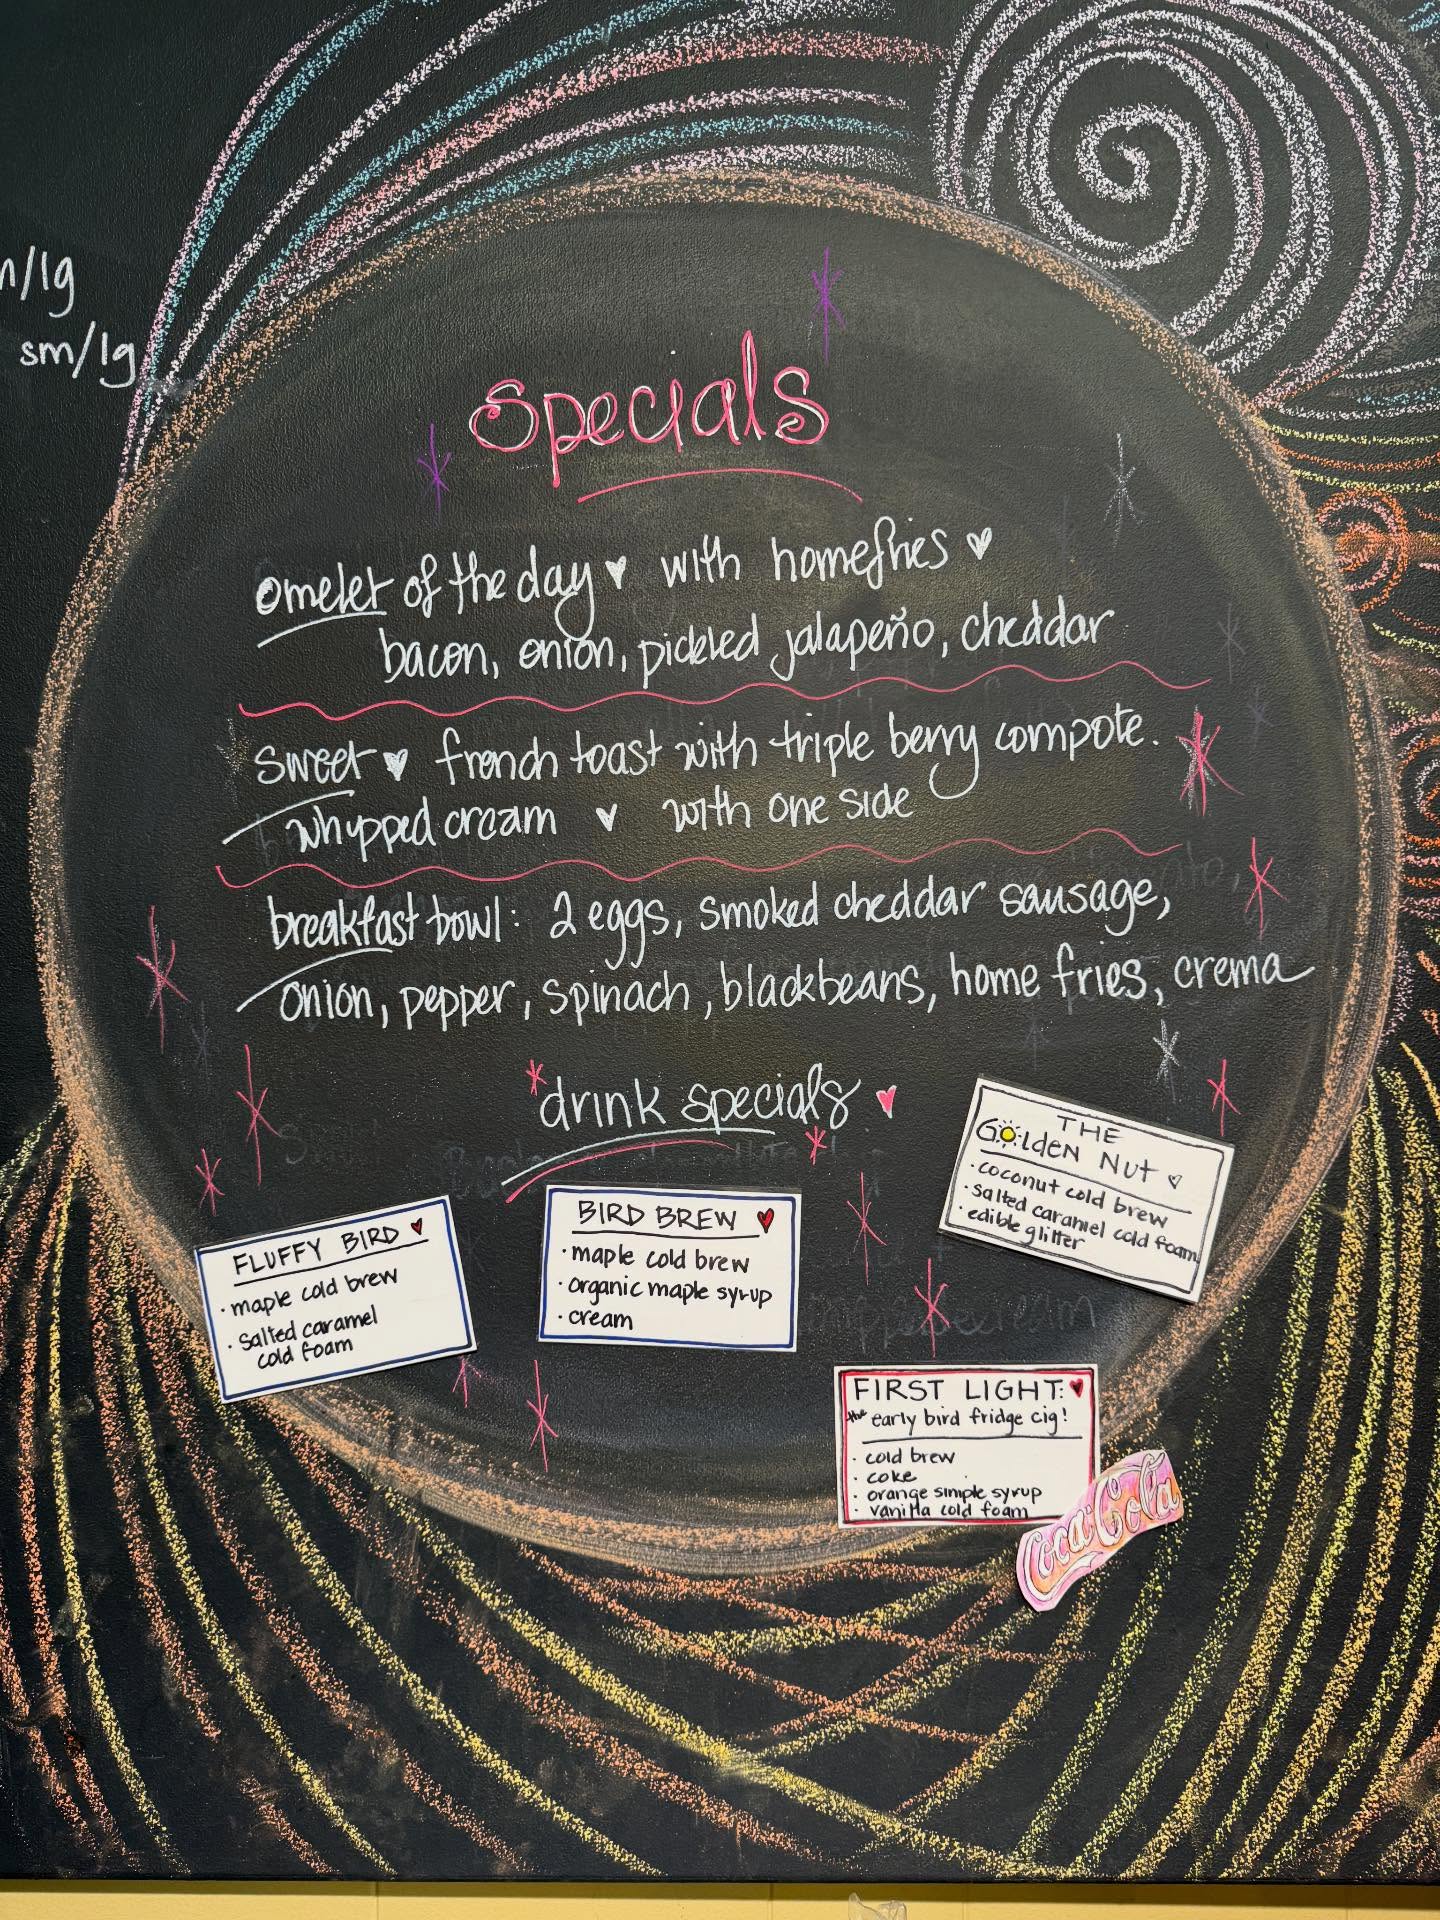 sm/lg
Specials
omelet of the day ♥ with homefries ♥
bacon, onion, pickled jalapeño, cheddar
sweet ♥ french toast with triple berry compote.
whipped cream ♥ with one side
breakfast bowl: 2 eggs, smoked cheddar sausage,
onion, pepper, spinach, blackbeans, home fries, crema
drink specials ♥
THE
GOLDEN NUT ♡
· coconut cold brew
· salted caramel cold foam
· edible glitter
FLUFFY BIRD ♥
· maple cold brew
· salted caramel
cold foam
BIRD BREW ♥
· maple cold brew
· organic maple syrup
· cream
FIRST LIGHT: ♥
the early bird fridge cig!
· cold brew
· coke
· orange simple syrup
· vanilla cold foam
Coca-Cola